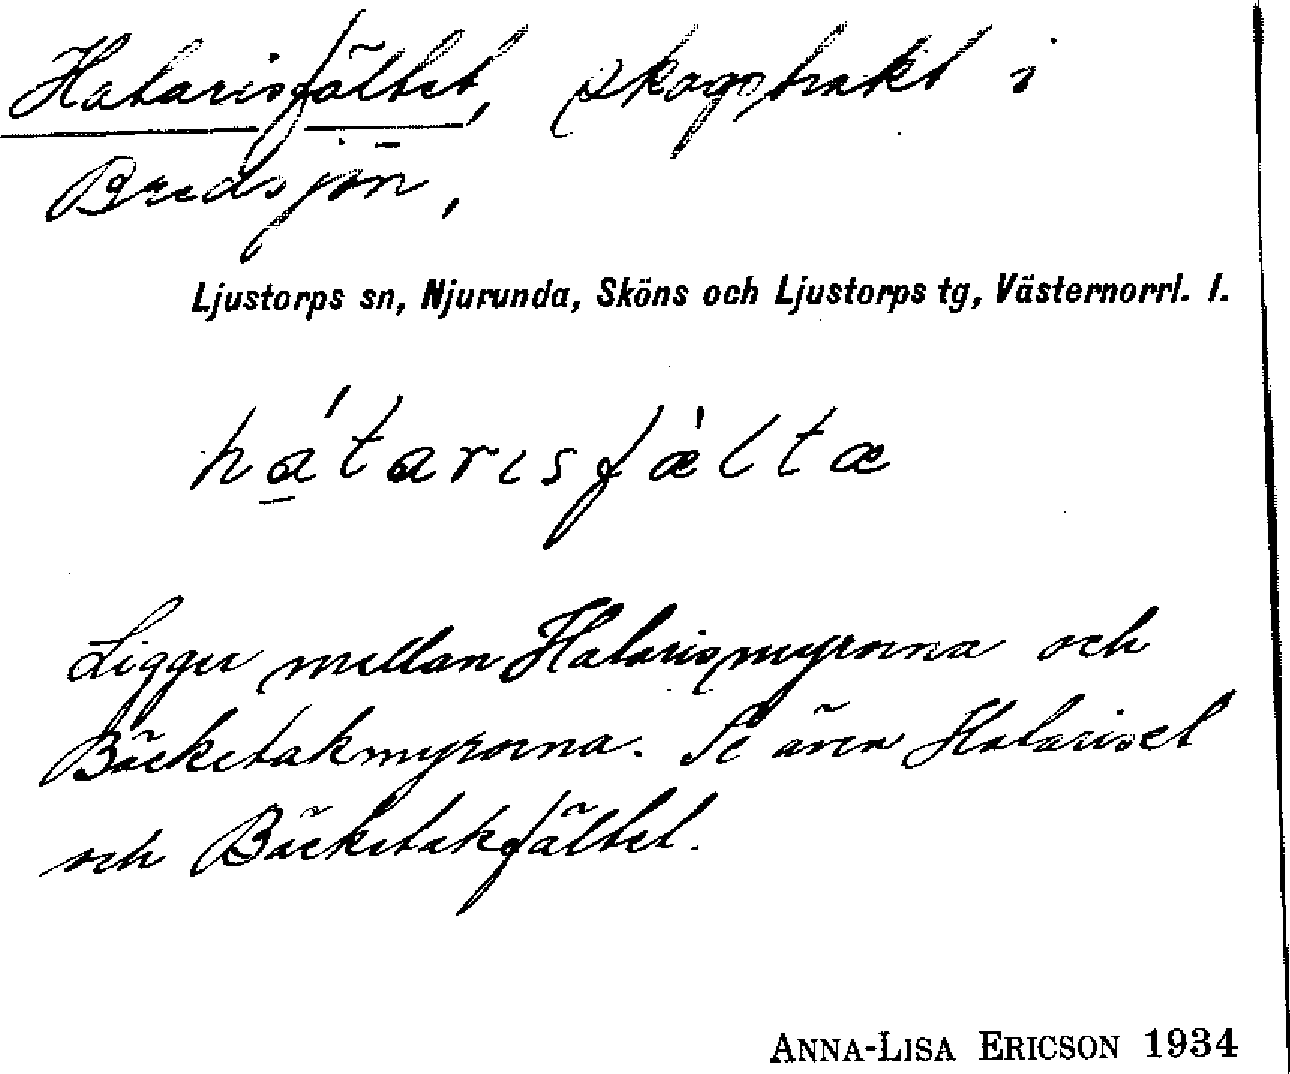 Hatarisfältet, skogstrakt i
Bredsjön,
Ljustorps sn, Njurunda, Sköns och Ljustorps tg, Västernorrl. l.
há̱tarɩsfæ̀ltæ
Ligger mellan Hatarismyrorna och
Bäcketakmyrorna. Se även Hatariset
och Bäcketakfältet.
ANNA-LISA ERICSON 1934